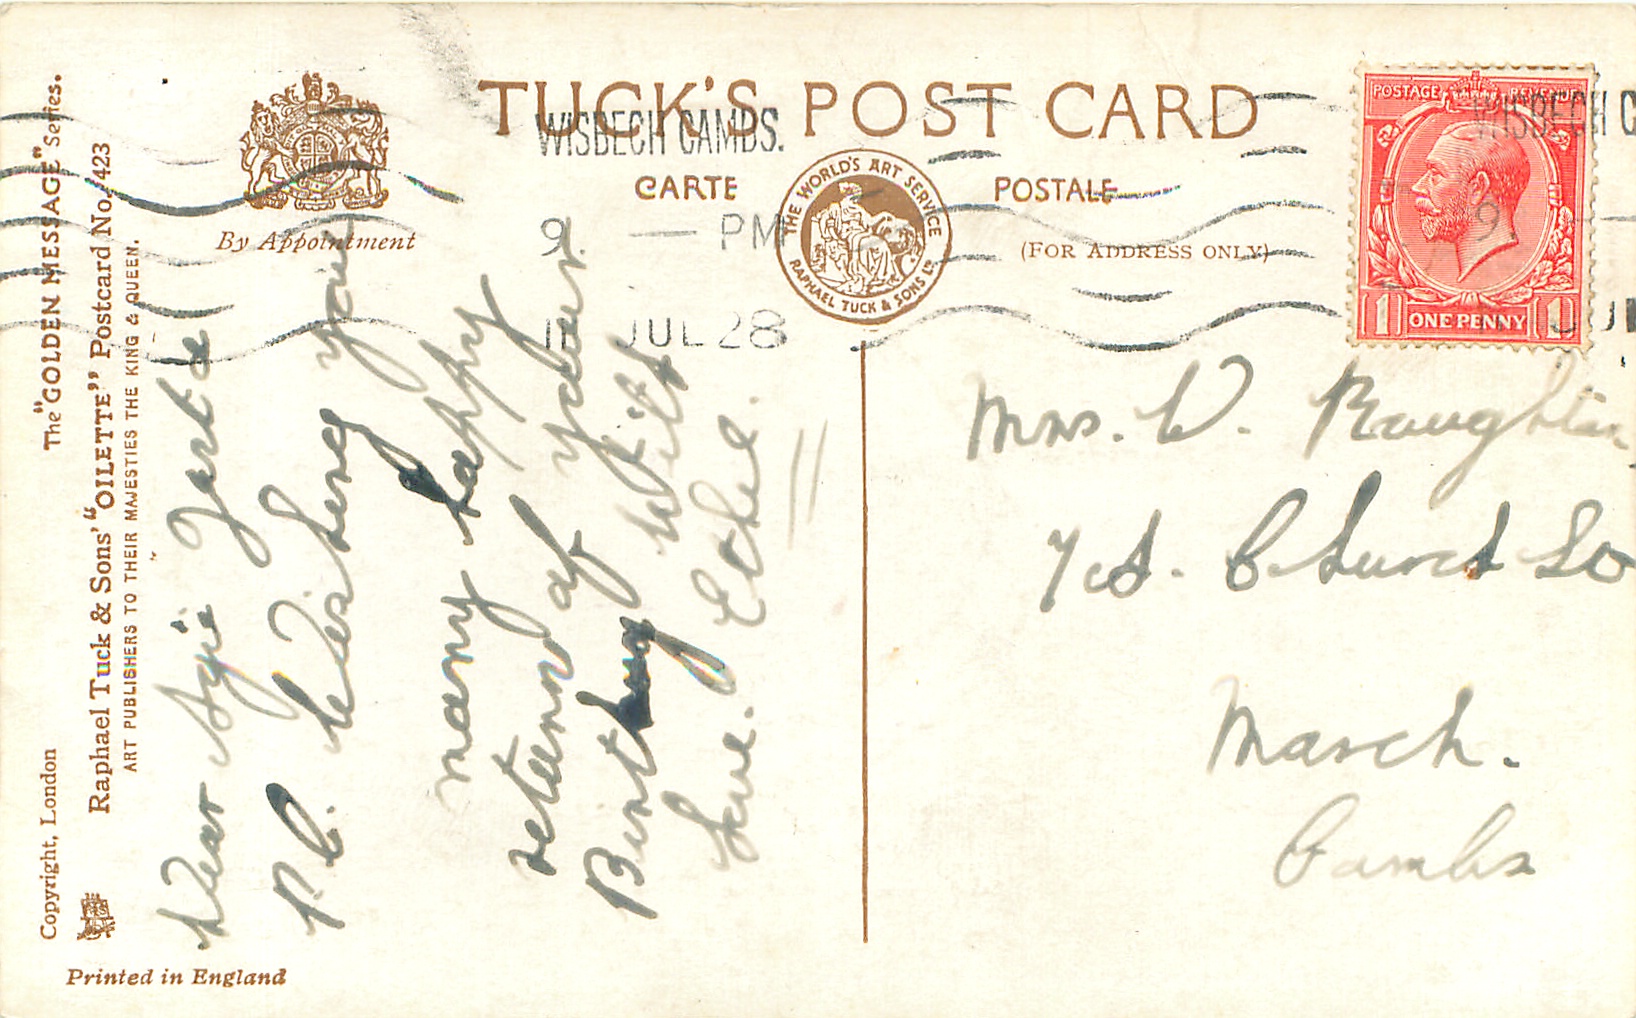 TUCK'S POST CARD
CARTE POSTALE
(FOR ADDRESS ONLY)
By Appointment
THE WORLD'S ART SERVICE
RAPHAEL TUCK & SONS LTD
WISBECH CAMBS.
9 — PM
18 JUL 28
POSTAGE REVENUE
1 ONE PENNY 1
WISBECH C
9
The "GOLDEN MESSAGE" Series.
Raphael Tuck & Sons' "OILETTE" Postcard No. 1423
ART PUBLISHERS TO THEIR MAJESTIES THE KING & QUEEN.
Copyright, London
Printed in England
Dear Agie Just a
P.C. Wishing you
many happy
return of your
Birthday with
love. Ethel.
Mrs. W. Roughton
7d. Church
March.
Cambs